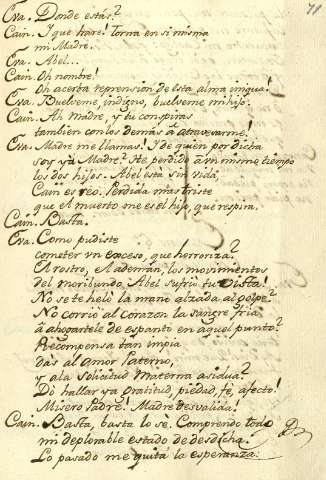 71
Eva. Donde estás?
Cain. I que haré! Torna en si misma
mi Madre.
Eva. Abel...
Cain. Oh nombre!
Oh acerba reprension de esta alma iniqua!
Eva. Buelveme, indigno, buelveme mi hijo.
Cain. Ah Madre, y tu conspiras
tambien con los demás à atravesarme!
Eva. Madre me llamas! I de quien por dicha
soy yà Madre? He perdido à un mismo tiempo
los dos hijos. Abel està sin vida,
Cain es reo. Perdida mas triste
que el muerto me es el hijo, que respira.
Cain. Basta.
Eva. Como pudiste
cometer un exceso, que horroriza?
El rostro, el ademán, los movimientos
del moribundo Abel sufrio tu vista!
No se te heló la mano alzada al golpe?
No corrió al corazon la sangre fria
à ahogartele de espanto en aquel punto?
Recompensa tan impia
dàs al amor Paterno,
y à la solicitud Materna asidua?
Dò hallar ya gratitud, piedad, fe, afecto!
Misero Padre! Madre desvalida!
Cain. Basta, basta lo sè. Comprendo todo
mi deplorable estado de desdicha.
Lo pasado me quita la esperanza.